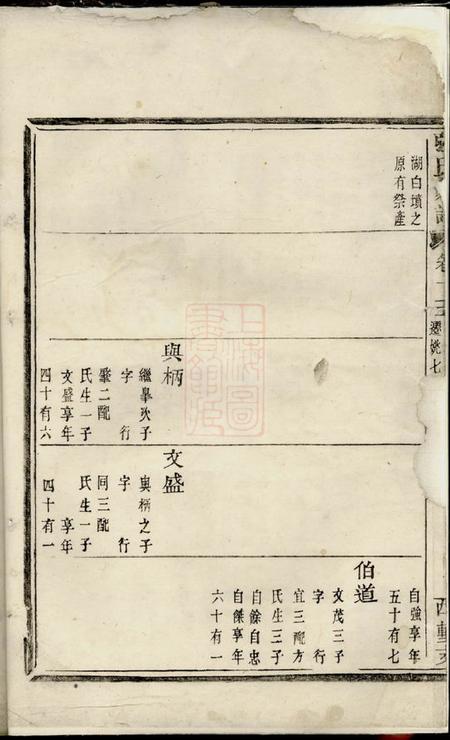 湖白墳之
原有祭產
與柄
繼皋次子
字　行
肇二配
氏生一子
文盛享年
四十有六
文盛
與柄之子
字　行
同三配
氏生一子
享年
四十有一
自強享年
五十有七
伯道
文茂三子
字　行
宜三配方
氏生三子
自餘自忠
自傑享年
六十有一
卷十三
遷姚七
上海圖
書館藏